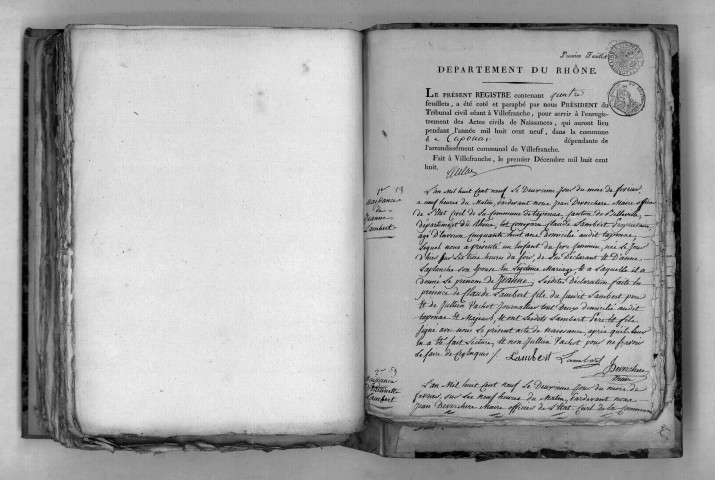 Premier Feuillet
DEPARTEMENT DU RHÔNE.
LE PRÉSENT REGISTRE contenant quatre
feuillets, a été coté et paraphé par nous PRÉSIDENT du
Tribunal civil séant à Villefranche, pour servir à l'enregis-
trement des Actes civils de Naissances, qui auront lieu
pendant l'année mil huit cent neuf, dans la commune
d e Taponas dépendante de
l'arrondissement communal de Villefranche.
Fait à Villefranche, le premier Décembre mil huit cent
huit.
1er
Naissance
de
Jeanne
Lambert
L'an mil huit cent neuf le Deuxieme jour du mois de fevrier
a neuf heures du Matin, pardevant nous jean Devorchere Maire officier
de l'Etat Civil de la Commune de taponas, Canton de Belleville,
département du Rhône, est comparu Claude Lambert
agé d'environ Cinquante huit ans domicilié audit taponas
lequel nous a présenté un Enfant du sexe feminin, née le jour
d'hier sur les trois heures du soir, de lui Déclarant et d'anne
Laplanche son Epouse en légitime Mariage et a laquelle il a
donné le prenom de Jeanne; lesdites Déclaration faite en
présence de Claude Lambert fils du susdit Lambert pere
et de Jullien Vachot journalier tous deux domicilié audit
taponas et Majeurs, et ont lesdits Lambert Pere et fils
signé avec nous le présent acte de naissance, après qu'il leur
en a été fait lecture, et non Jullien Vachot pour ne savoir
le faire de ce enquis /. Lambert Lambert
Devorchere
maire
2e
Naissance
Lambert
L'an Mil huit Cent neuf le Deuxieme jour du mois de
fevrier, sur les neuf heures du Matin, pardevant nous
jean Devorchere Maire officier de l'Etat Civil de la Commune